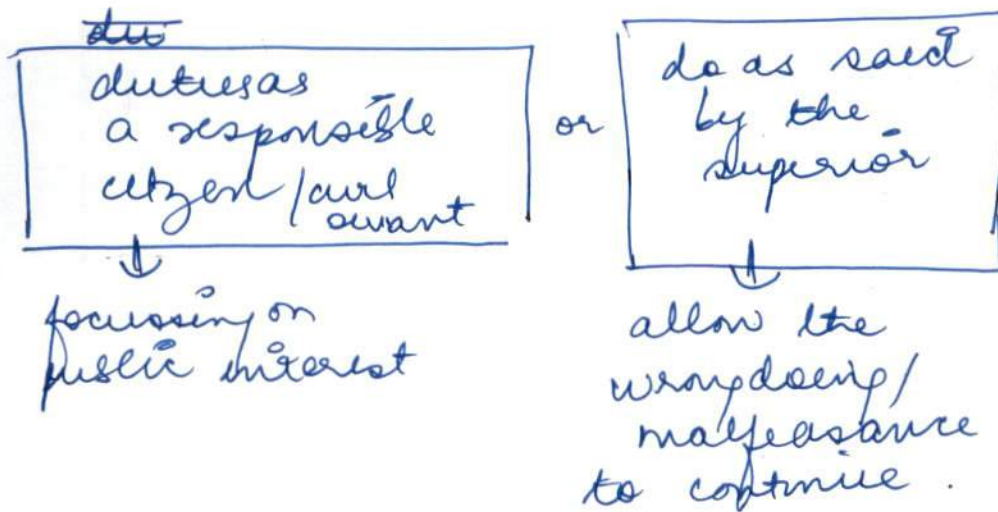 du
duties as
a responsible
citizen / civil
servant
or
do as said
by the
superior
focussing on
public interest
allow the
wrongdoing /
malfeasance
to continue.